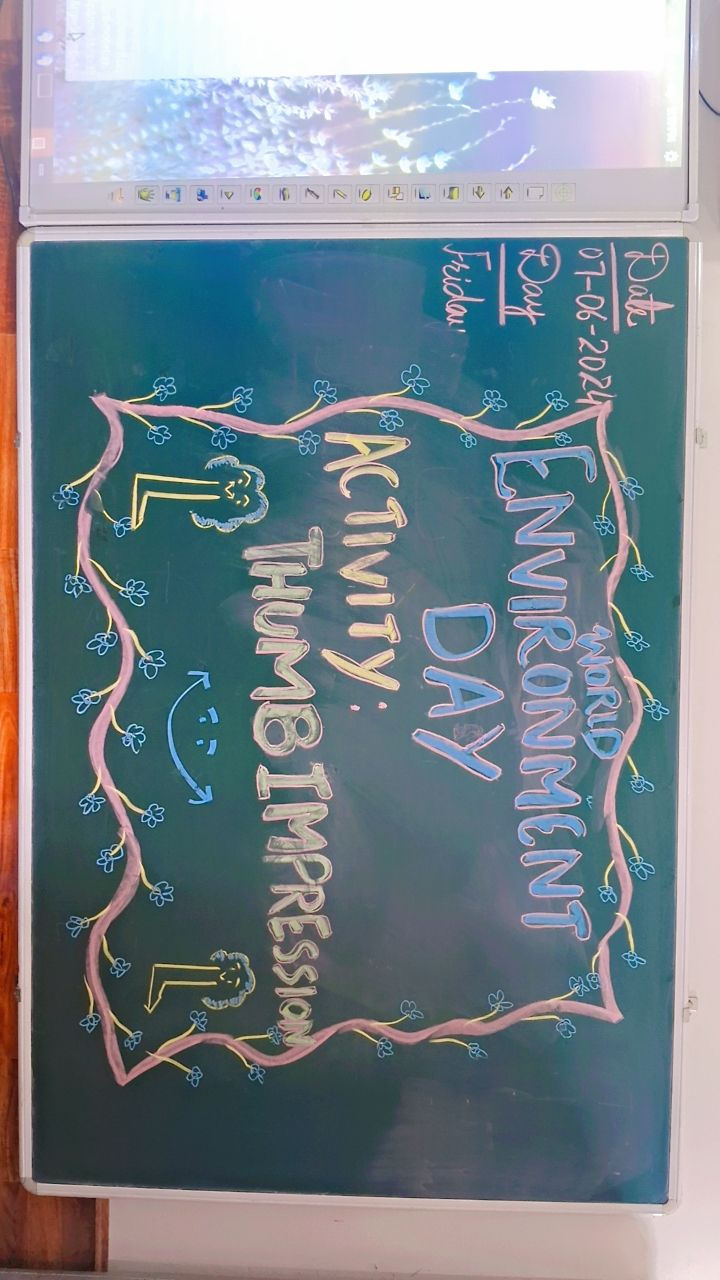 Date
07-06-2024
Day
Friday
WORLD
ENVIRONMENT
DAY
ACTIVITY:
THUMB IMPRESSION